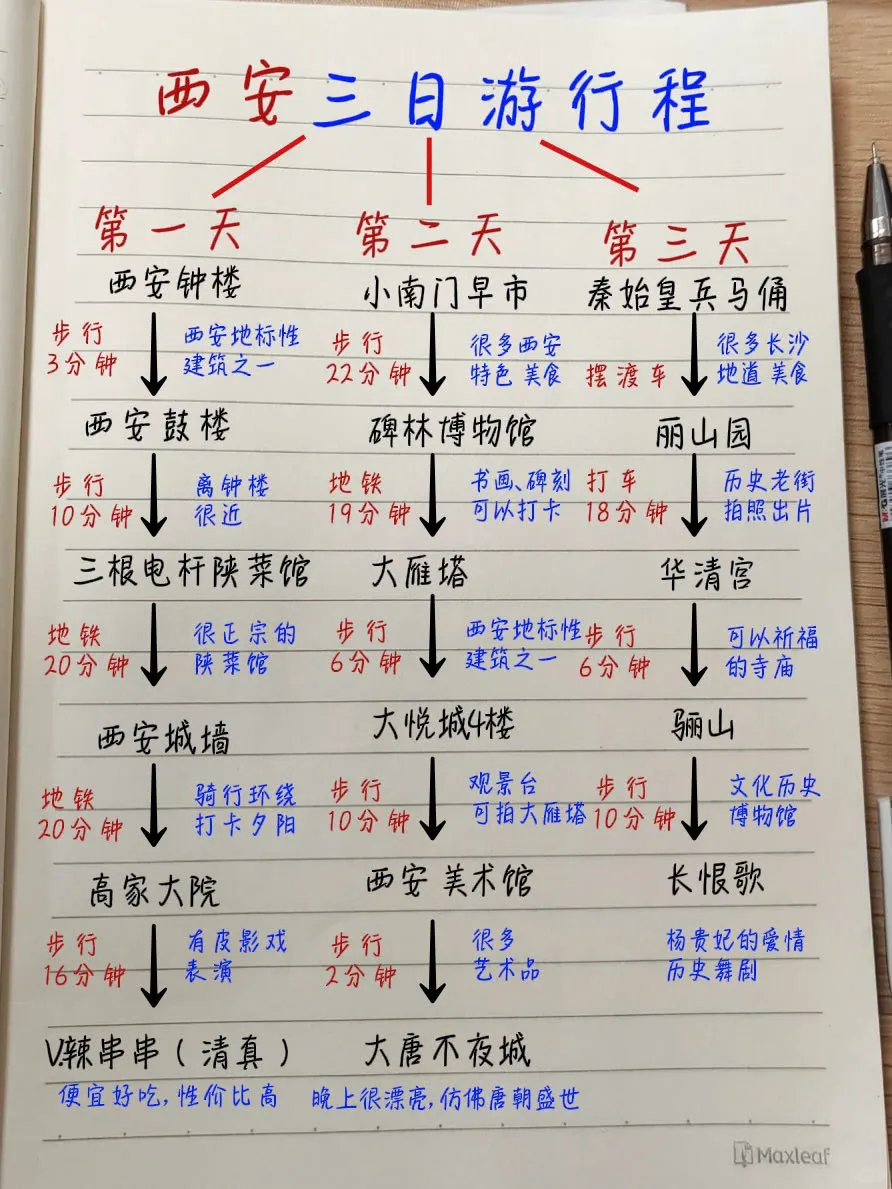 西安三日游行程
第一天
西安钟楼
步行
3分钟
西安地标性
建筑之一
西安鼓楼
步行
10分钟
离钟楼
很近
三根电杆陕菜馆
地铁
20分钟
很正宗的
陕菜馆
西安城墙
地铁
20分钟
骑行环绕
打卡夕阳
高家大院
步行
16分钟
有皮影戏
表演
V.辣串串(清真)
便宜好吃,性价比高
第二天
小南门早市
步行
22分钟
很多西安
特色美食
碑林博物馆
地铁
19分钟
书画、碑刻
可以打卡
大雁塔
步行
6分钟
西安地标性
建筑之一
大悦城4楼
步行
10分钟
观景台
可拍大雁塔
西安美术馆
步行
2分钟
很多
艺术品
大唐不夜城
晚上很漂亮,仿佛唐朝盛世
第三天
秦始皇兵马俑
摆渡车
很多长沙
地道美食
丽山园
打车
18分钟
历史老街
拍照出片
华清宫
步行
6分钟
可以祈福
的寺庙
骊山
步行
10分钟
文化历史
博物馆
长恨歌
杨贵妃的爱情
历史舞剧
Maxleaf